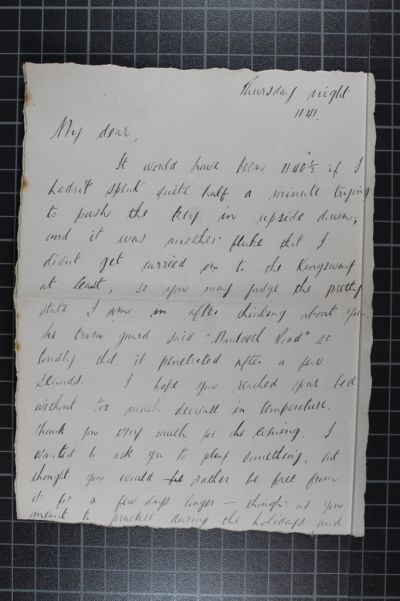 Thursday night
11.41.
My dear,
It would have been 11.40½ if I
hadn't spent quite half a minute trying
to push the key in upside down,
and it was another fluke that I
didn't get carried on to the Kingsway
at least, so you may judge the pretty
state I am in after thinking about you.
The tram guard said "Road" so
loudly that it penetrated after a few
seconds. I hope you reached your bed
without too much decrease in temperature.
Thank you very much for the evening. I
wanted to ask you to play something, but
thought you would be rather be free from
it for a few days longer — though as you
meant to practise during the holidays and